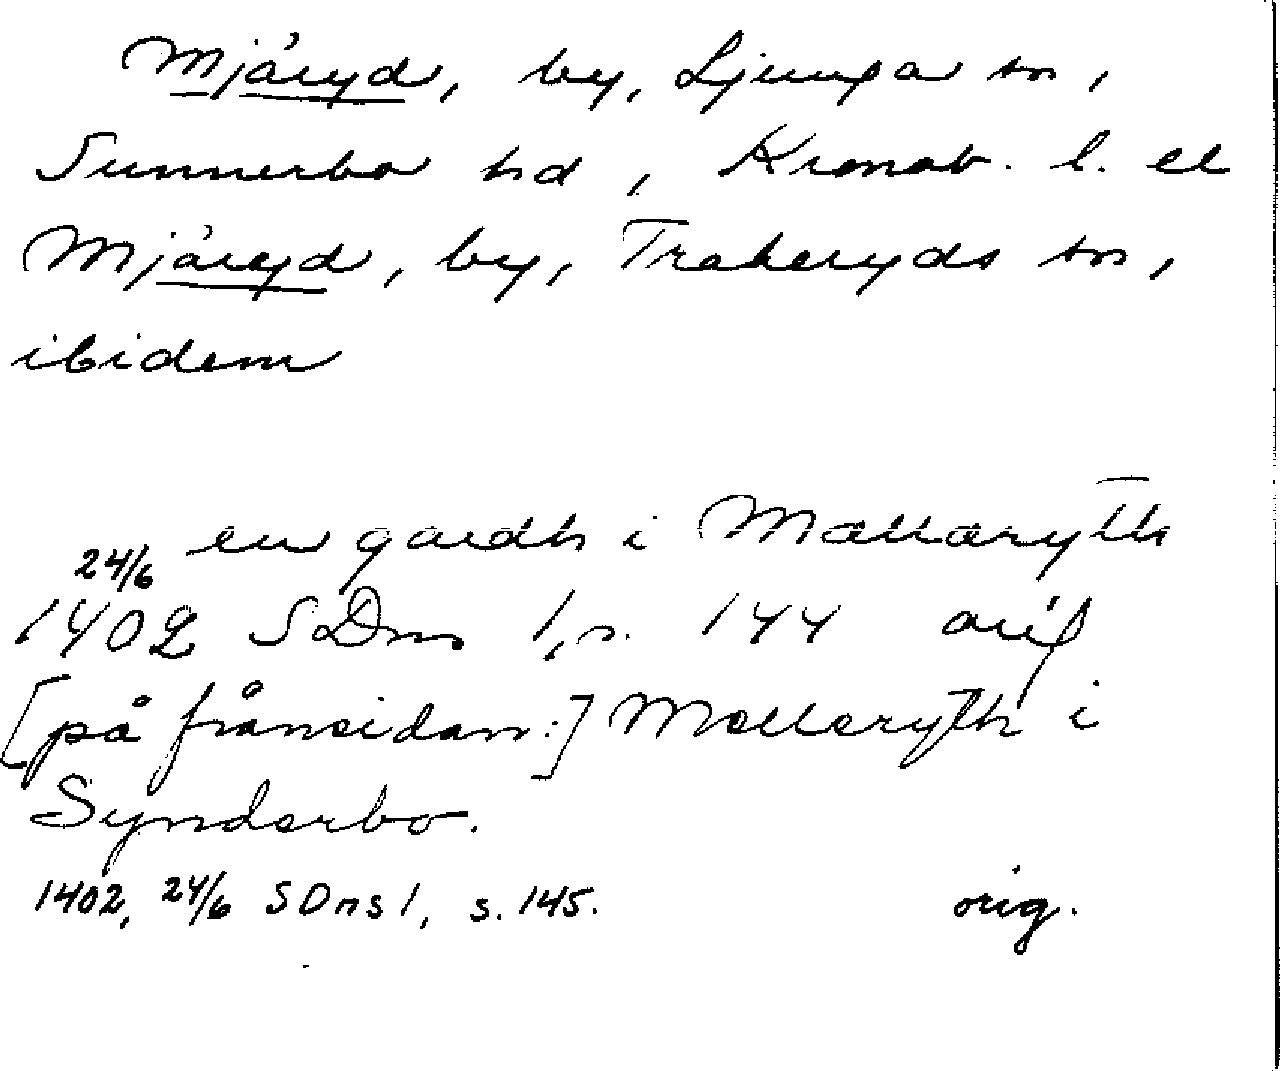 Mjäryd, by, Ljunga sn,
Sunnerbo hd, Kronob. l. el
Mjäryd, by, Traheryds sn,
ibidem
en gardh i Mællæryth
24/6
1402 SDns 1, s. 144 orig
[på frånsidan:] Mælleryth i
Synderbo.
1402, 24/6 SDns 1, s. 145. orig.